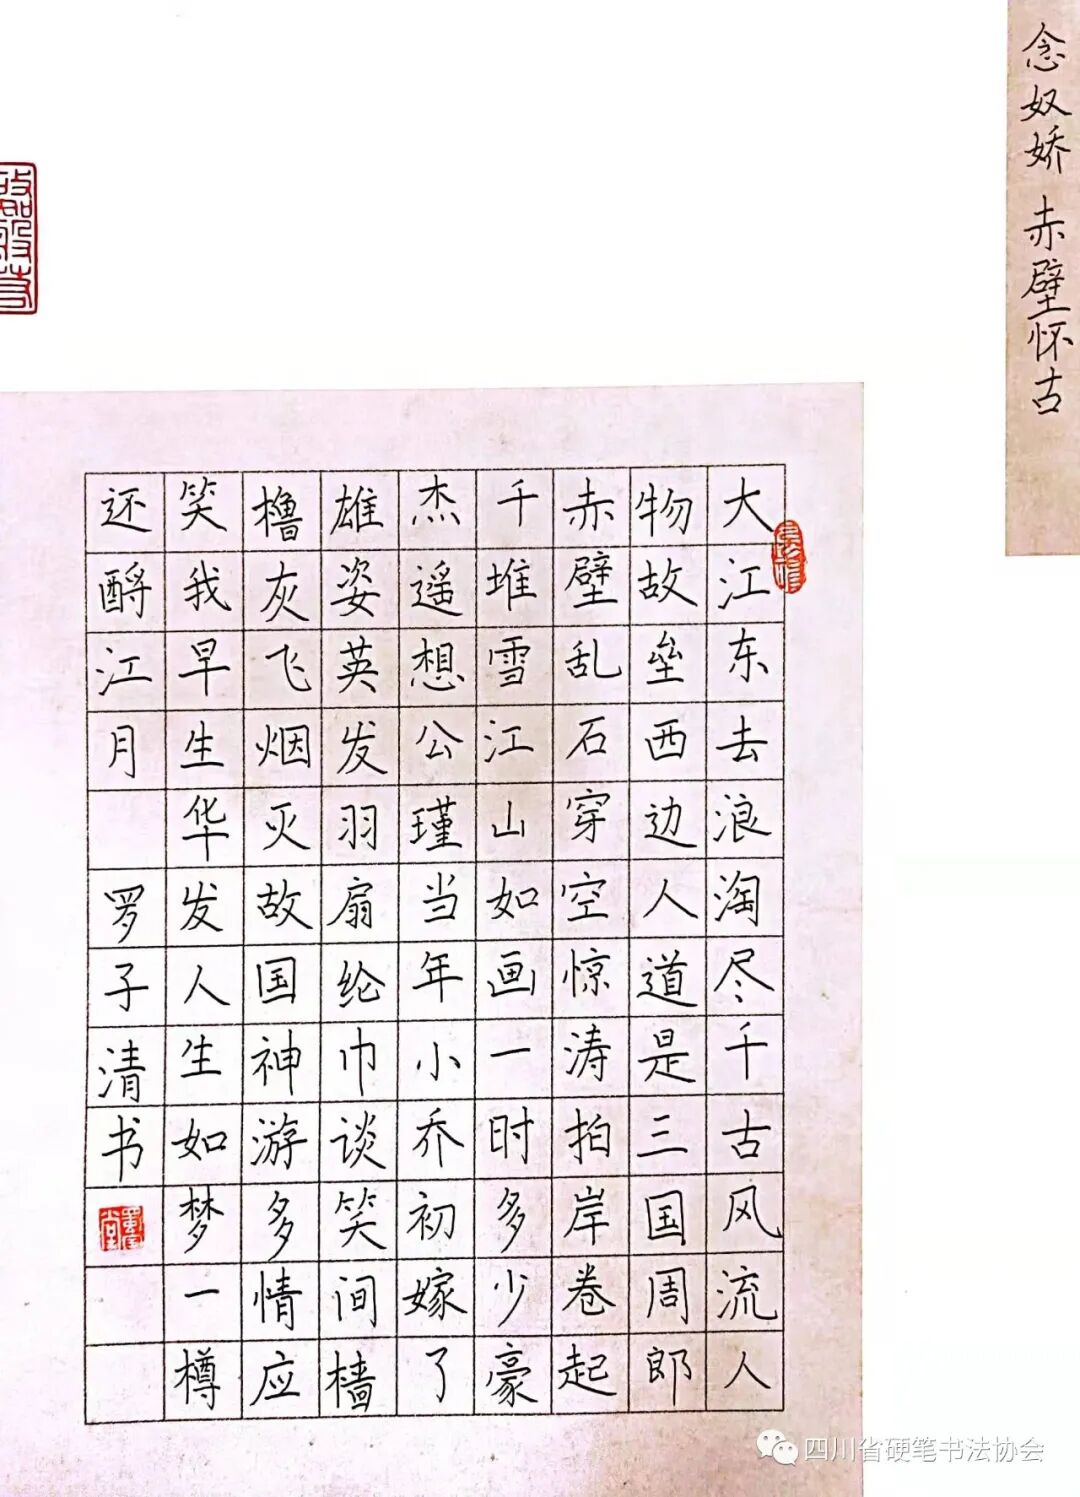 念奴娇 赤壁怀古
大江东去浪淘尽千古风流人
物故垒西边人道是三国周郎
赤壁乱石穿空惊涛拍岸卷起
千堆雪江山如画一时多少豪
杰遥想公瑾当年小乔初嫁了
雄姿英发羽扇纶巾谈笑间樯
橹灰飞烟灭故国神游多情应
笑我早生华发人生如梦一樽
还酹江月 罗子清书
四川省硬笔书法协会